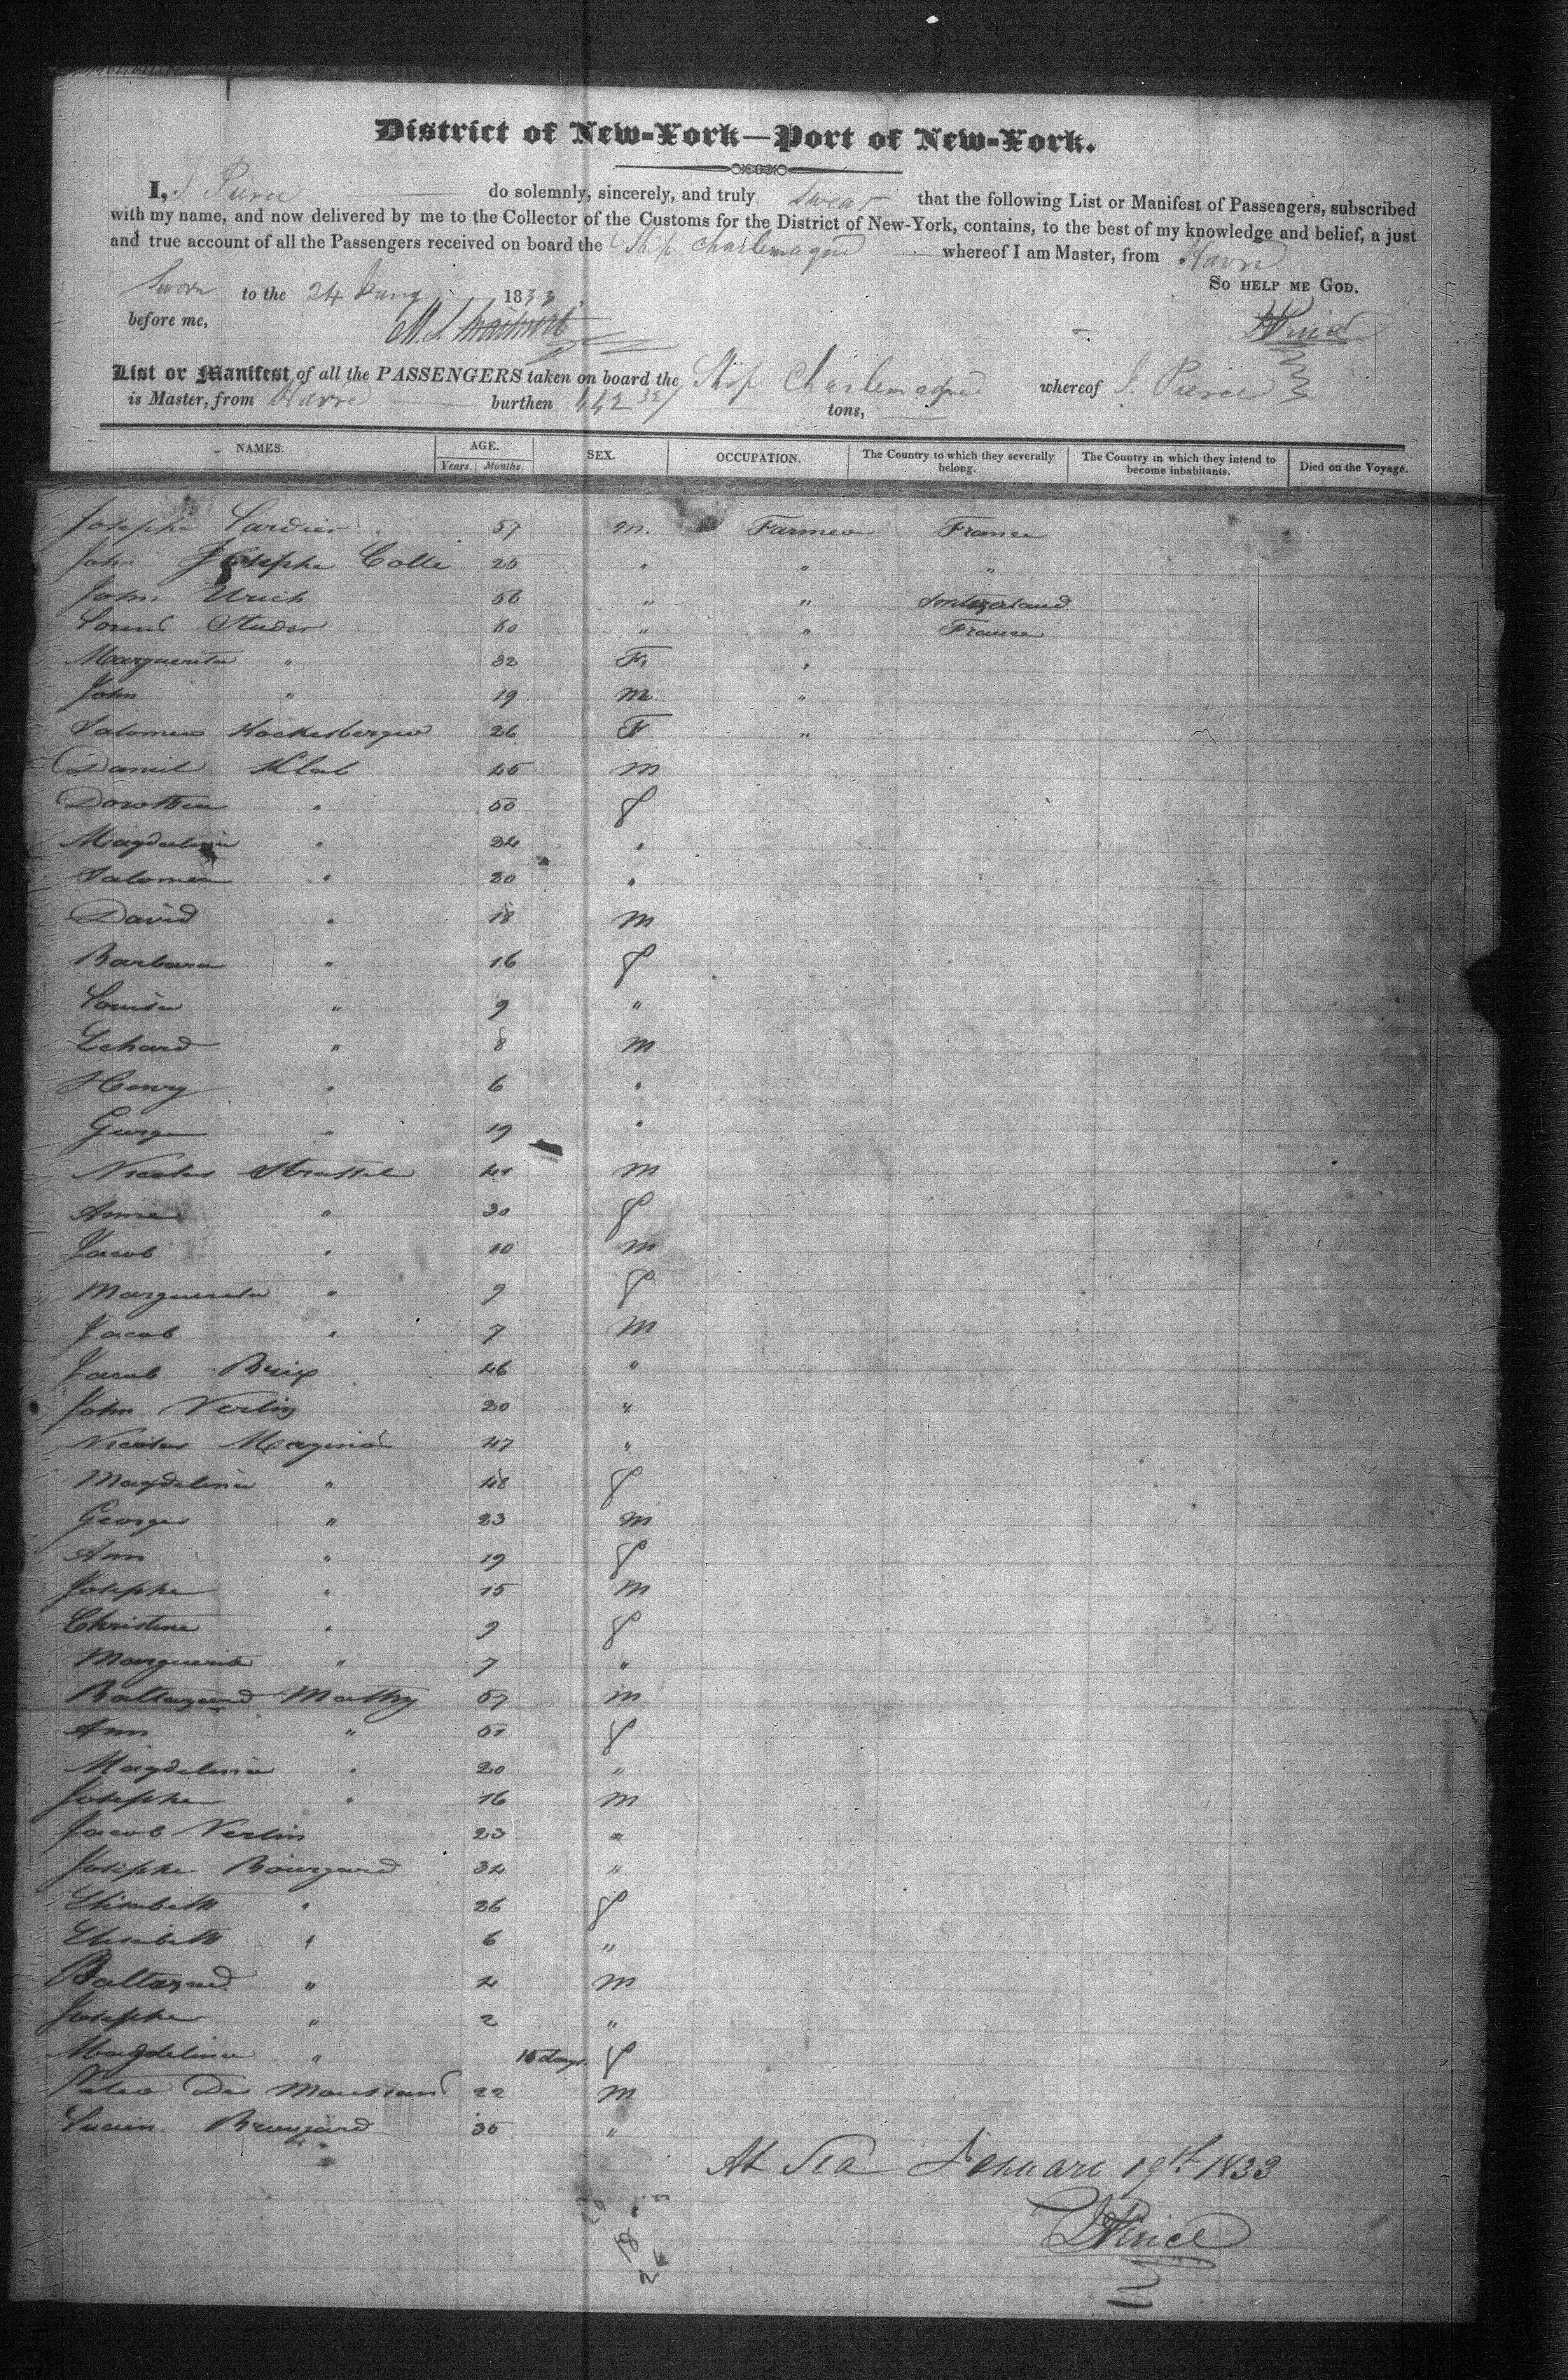 District of New-York—Port of New-York.
I, J Pierce do solemnly, sincerely, and truly swear that the following List or Manifest of Passengers, subscribed
with my name, and now delivered by me to the Collector of the Customs for the District of New-York, contains, to the best of my knowledge and belief, a just
and true account of all the Passengers received on board the Ship Charlemagne whereof I am Master, from Havre
So help me God.
Sworn to the 24 Jany 1833
before me,
J Pierce
List or Manifest of all the PASSENGERS taken on board the Ship Charlemagne whereof J. Pierce
is Master, from Havre burthen 442 tons,
NAMES. AGE. SEX. OCCUPATION. The Country to which they severally belong. The Country in which they intend to become inhabitants. Died on the Voyage.
Years. Months.
Josephe Cardier 57 M. Farmer France
John Josephe Colle 26 " " "
John Urich 56 " " Switzerland
Studer 60 " " France
Marguerita " 32 F. "
John " 19 M. "
Salomea Hockesberger 26 F "
Daniel Klab 45 M
Dorothea " 50 f
Magdalena " 24 "
Salomea " 20 "
David " 18 M
Barbara " 16 f
Louisa " 9 "
Lehard " 8 M
Henry " 6 "
George " 19 "
Nicolas Strassel 41 M
Anna " 30 f
Jacob " 10 M
Marguereta " 9 f
Jacob " 7 M
Jacob Brix 46 "
John Verlin 20 "
Nicolas 47 "
Magdelina " 48 f
Georges " 23 M
Ann " 19 f
Josephe " 15 M
Christine " 9 f
Marguerite " 7 "
Baltazard Mathy 57 M
Ann " 51 f
Magdelina " 20 "
Josephe " 16 M
Jacob Verlin 23 "
Josephe Bourgard 34 "
Elisabeth " 26 f
Elisabeth " 6 "
Baltazard " 4 M
Josephe " 2 "
Magdelina " 15 days f
De 22 M
Lucien 35 "
At Sea January 19th 1833
J Pierce
18
26